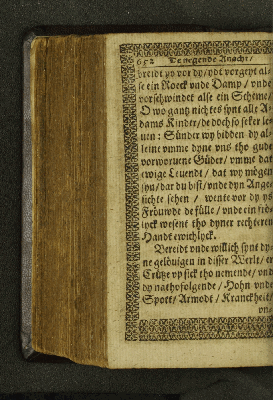 652 De negende Andacht/
breidt yo vor dy/ydt vorgeyt al-
se ein Roeck vnde Damp / vnde
vorschwindet alse ein Scheme/
O wo gantz nichtes synt alle A-
dams Kinder/de doch so seker le-
uen : Sünder wy bidden dy al-
leine vmme dyne vns tho gude
vorworuene Güder/ vmme dat
ewige Leuendt / dat wy mögen
syn/ dar du bist/vnde dyn Ange-
sichte sehen / wente vor dy ys
Fröuwde de fülle/ vnde ein
lyck wesent tho dyner rechteren
Handt ewichlyck.
Bereidt vnde willich synt dy-
ne gelöuigen in disser Werlt/ er
Crütze vp sick tho nemende/ vnde
dy nathofolgende / Hohn vnde
Spott/ Armodt / Kranckheit/
vn-